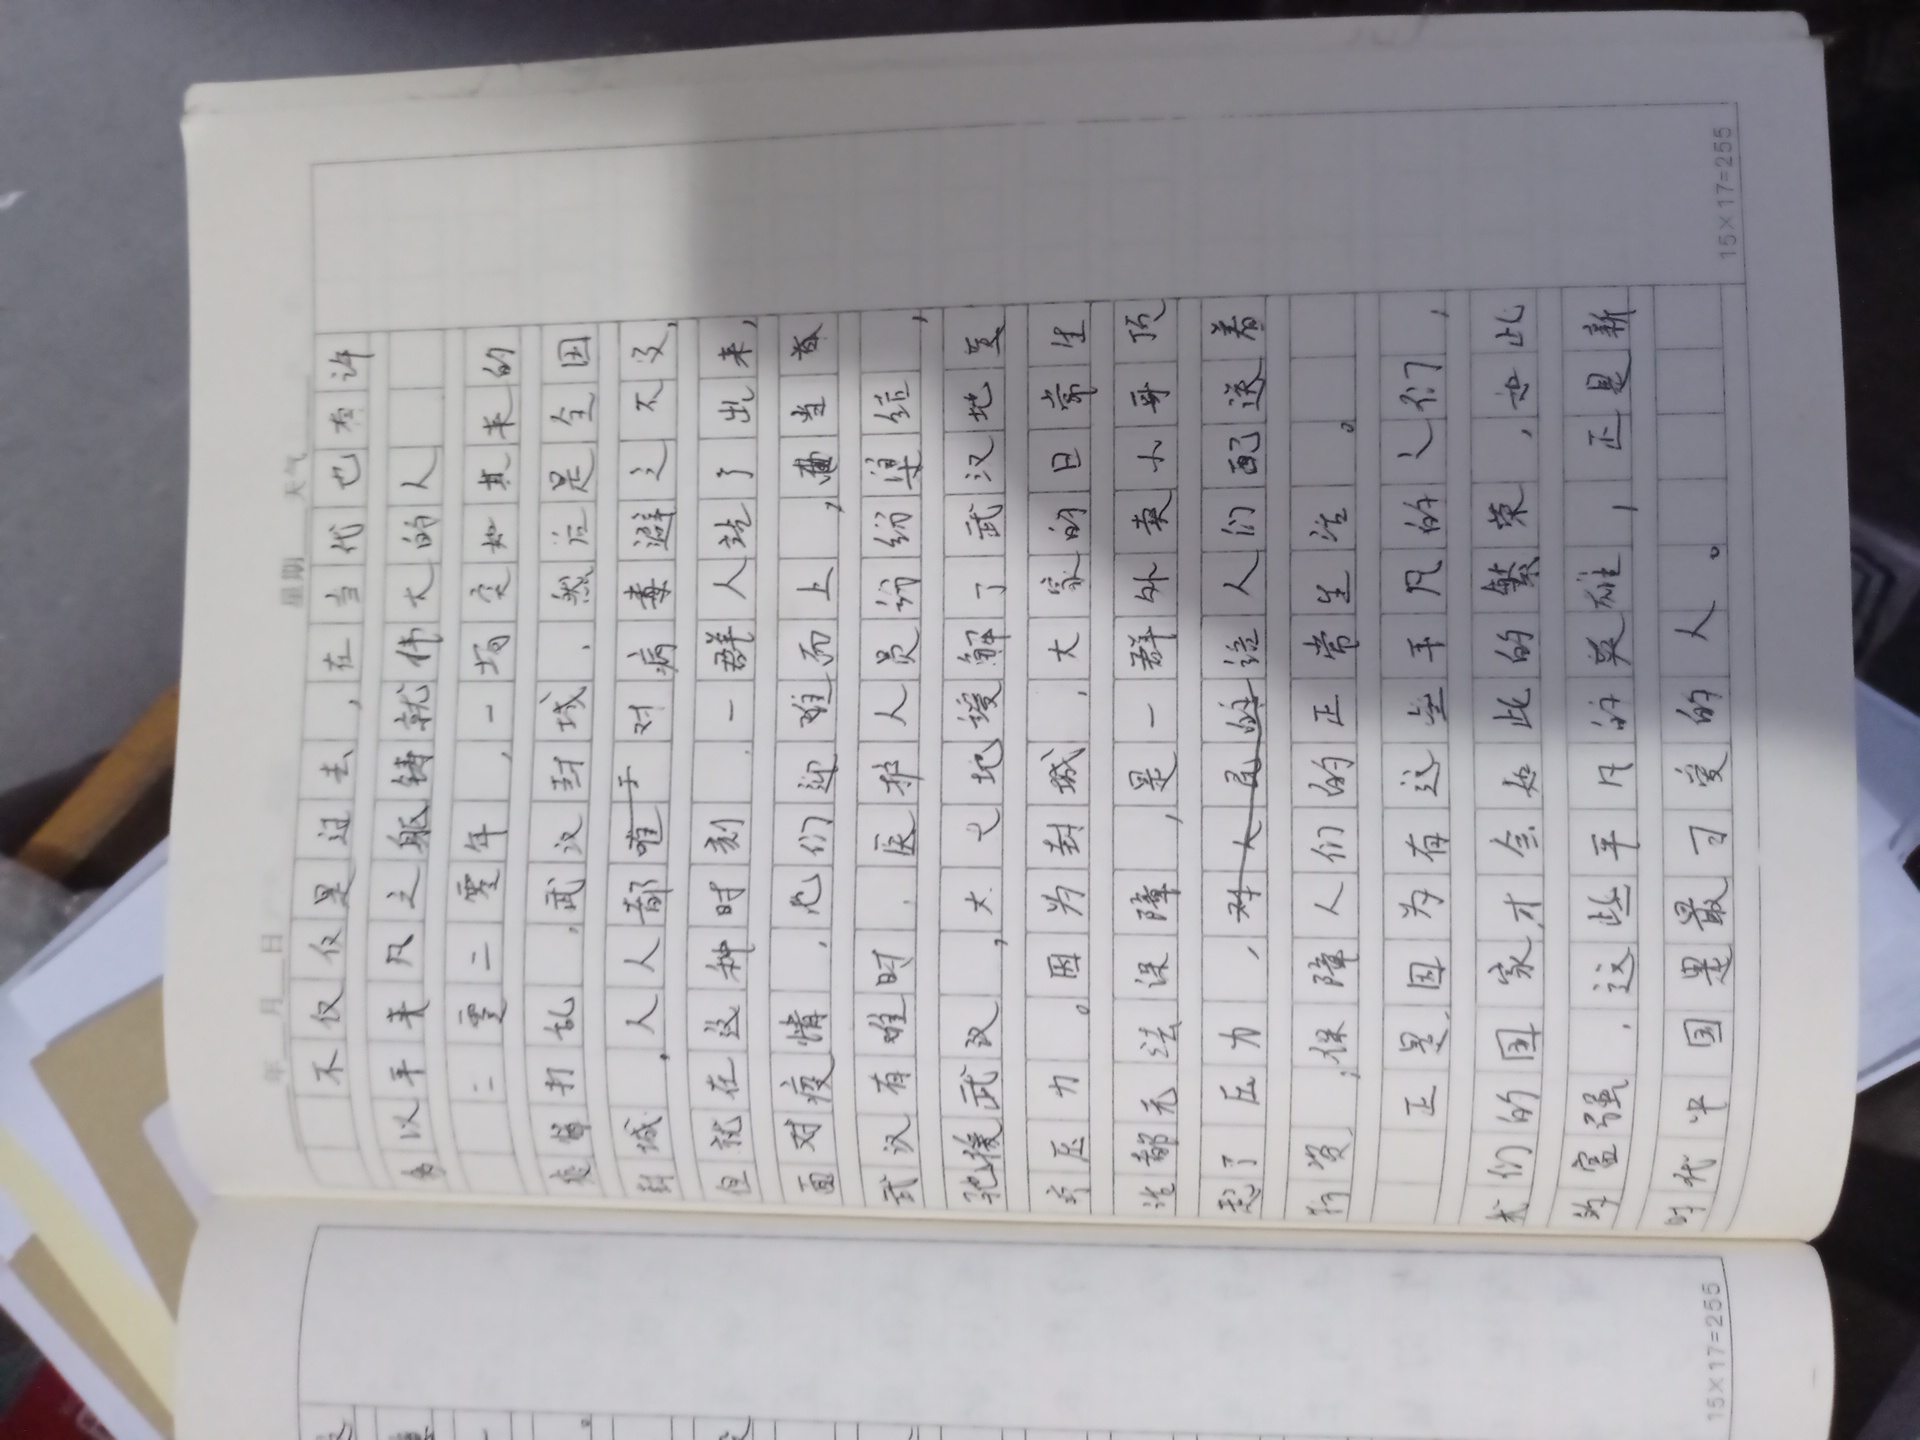 年 月 日 星期 天气
不仅仅是过去，在当代也有许
多以平凡之躯铸就伟大的人
二零二零年，一场突如其来的
打乱，武汉封城，然后是全国
封城，人人都唯于对病毒避之不及，
但就在这种时刻，一群人站了出来，
面对疫情，他们迎难而上，首当
武汉有难时，医护人员纷纷集结，
驰援武汉，大大地缓解了武汉地
压力。因为封城，大家的日常生
活都无法保障，是一群外卖小哥顶
起了压力，对人民的给人们配送着
物资，保障人们的正常生活。
正是因为有这些平凡的人们，
我们的国家才会如此的繁荣，如此
的富强，这些平凡的英雄，正是新
时代中国最可爱的人。
15×17=255
15×17=255